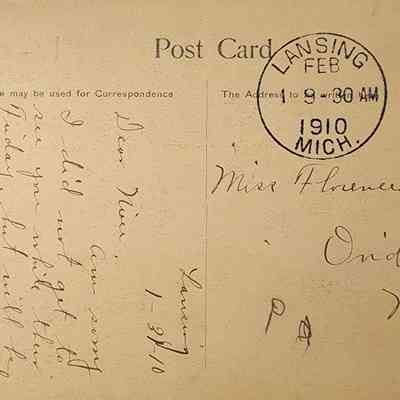 Post Card
e may be used for Correspondence
The Address to be
LANSING
FEB
1 9-30 AM
1910
MICH.
Miss Florence
Onid
P
Lansing
1-31-10
Dear Niece,
Am sorry
I did not get to
see you while their
Friday, but will